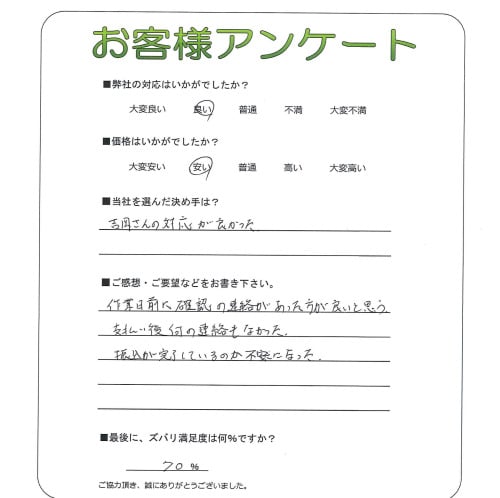 お客様アンケート
■弊社の対応はいかがでしたか？
大変良い 良い 普通 不満 大変不満
■価格はいかがでしたか？
大変安い 安い 普通 高い 大変高い
■当社を選んだ決め手は？
吉岡さんの対応が良かった.
■ご感想・ご要望などをお書き下さい。
作業日前に確認の連絡があった方が良いと思う
支払い後何の連絡もなかった.
振込が完了しているのか不安になった.
■最後に、ズバリ満足度は何%ですか？
70 %
ご協力頂き、誠にありがとうございました。